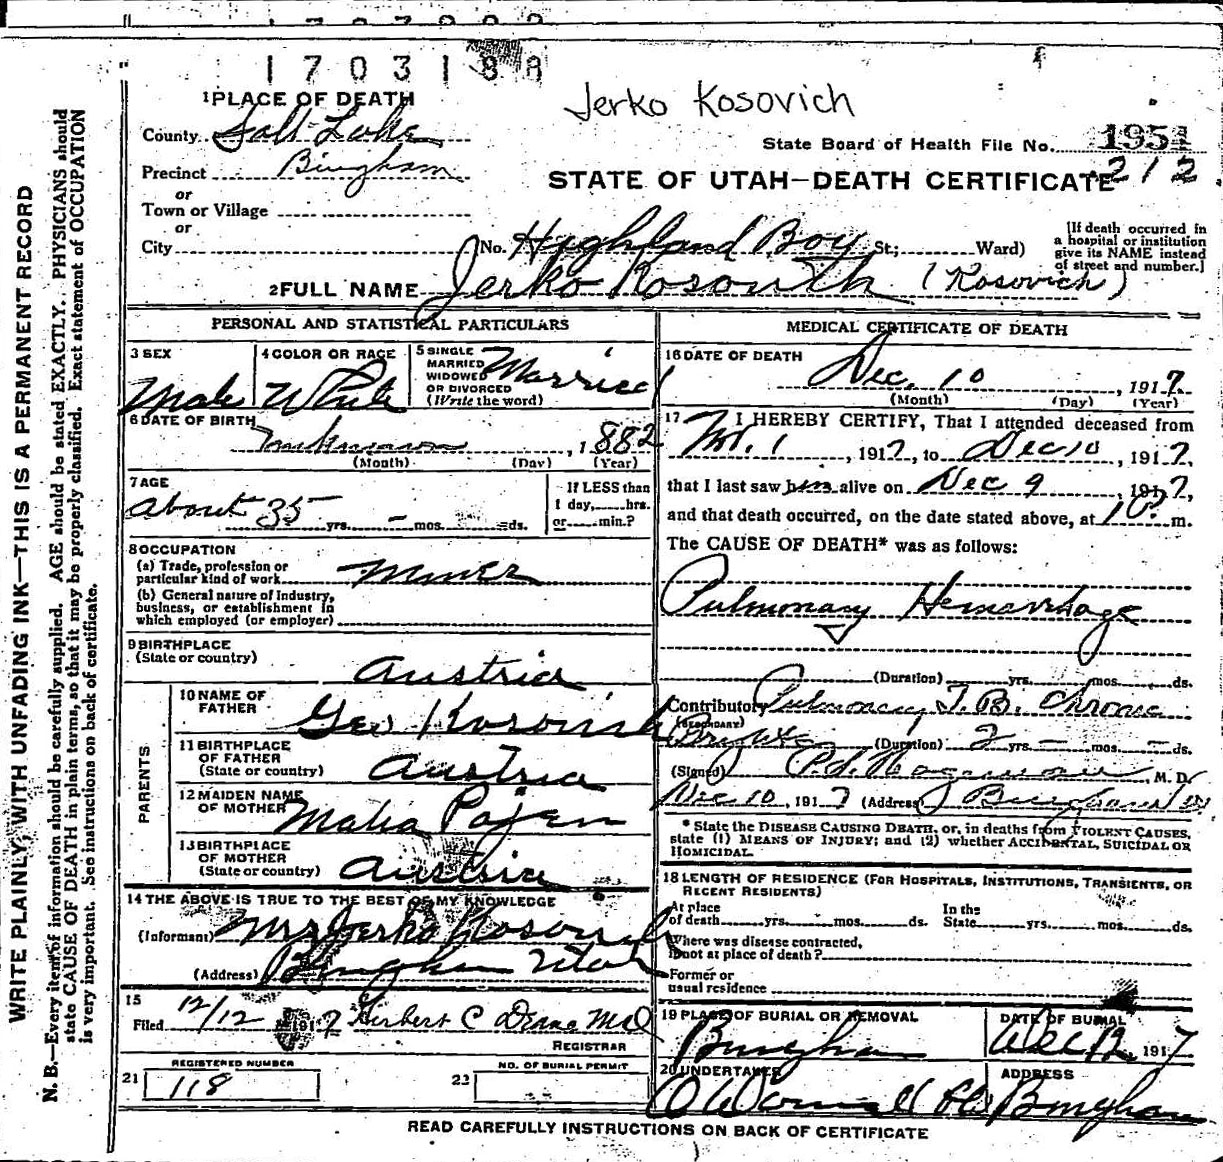 1703188
Jerko Kosovich
1 PLACE OF DEATH
County Salt Lake
State Board of Health File No. 1954
Precinct Bingham
212
STATE OF UTAH—DEATH CERTIFICATE
or
Town or Village
or
City No. Highland Boy St; Ward)
[If death occurred in a hospital or institution give its NAME instead of street and number.]
2 FULL NAME Jerko Kosovich (Kosovich)
PERSONAL AND STATISTICAL PARTICULARS
3 SEX Male
4 COLOR OR RACE White
5 SINGLE MARRIED WIDOWED OR DIVORCED (Write the word) Married
6 DATE OF BIRTH unknown, 1882
(Month) (Day) (Year)
7 AGE
About 35 yrs. – mos. ds.
If LESS than 1 day, hrs. or min.?
8 OCCUPATION
(a) Trade, profession or particular kind of work Miner
(b) General nature of Industry, business, or establishment in which employed (or employer)
9 BIRTHPLACE
(State or country) Austria
PARENTS
10 NAME OF FATHER Geo Kosovich
11 BIRTHPLACE OF FATHER (State or country) Austria
12 MAIDEN NAME OF MOTHER
13 BIRTHPLACE OF MOTHER (State or country) Austria
14 THE ABOVE IS TRUE TO THE BEST OF MY KNOWLEDGE
(Informant) Mrs Jerko Kosovich
(Address) Bingham Utah
15
Filed 12/12 1917 Herbert C
REGISTRAR
REGISTERED NUMBER
21 118
NO. OF BURIAL PERMIT
23
MEDICAL CERTIFICATE OF DEATH
16 DATE OF DEATH
Dec. 10, 1917
(Month) (Day) (Year)
17 I HEREBY CERTIFY, That I attended deceased from
1, 1917, to Dec 10, 1917,
that I last saw him alive on Dec 9 1917,
and that death occurred, on the date stated above, at m.
The CAUSE OF DEATH* was as follows:
Pulmonary Hemorrhage
(Duration) yrs. mos. ds.
Contributory Pulmonary T.B. Chronic
(SECONDARY)
Brights (Duration) 2 yrs. – mos. – ds.
(Signed) M. D.
Dec 10, 1917 (Address) Bingham
* State the DISEASE CAUSING DEATH, or, in deaths from VIOLENT CAUSES,
state (1) MEANS OF INJURY; and (2) whether ACCIDENTAL, SUICIDAL OR
HOMICIDAL.
18 LENGTH OF RESIDENCE (FOR HOSPITALS, INSTITUTIONS, TRANSIENTS, OR RECENT RESIDENTS)
At place of death yrs. mos. ds. In the State yrs. mos. ds.
Where was disease contracted, if not at place of death?
Former or usual residence
19 PLACE OF BURIAL OR REMOVAL
Bingham
DATE OF BURIAL
Dec 12, 1917
20 UNDERTAKER
ADDRESS
Bingham
READ CAREFULLY INSTRUCTIONS ON BACK OF CERTIFICATE
WRITE PLAINLY, WITH UNFADING INK—THIS IS A PERMANENT RECORD
N. B.—Every item of information should be carefully supplied. AGE should be stated EXACTLY. PHYSICIANS should
state CAUSE OF DEATH in plain terms, so that it may be properly classified. Exact statement of OCCUPATION
is very important. See instructions on back of certificate.